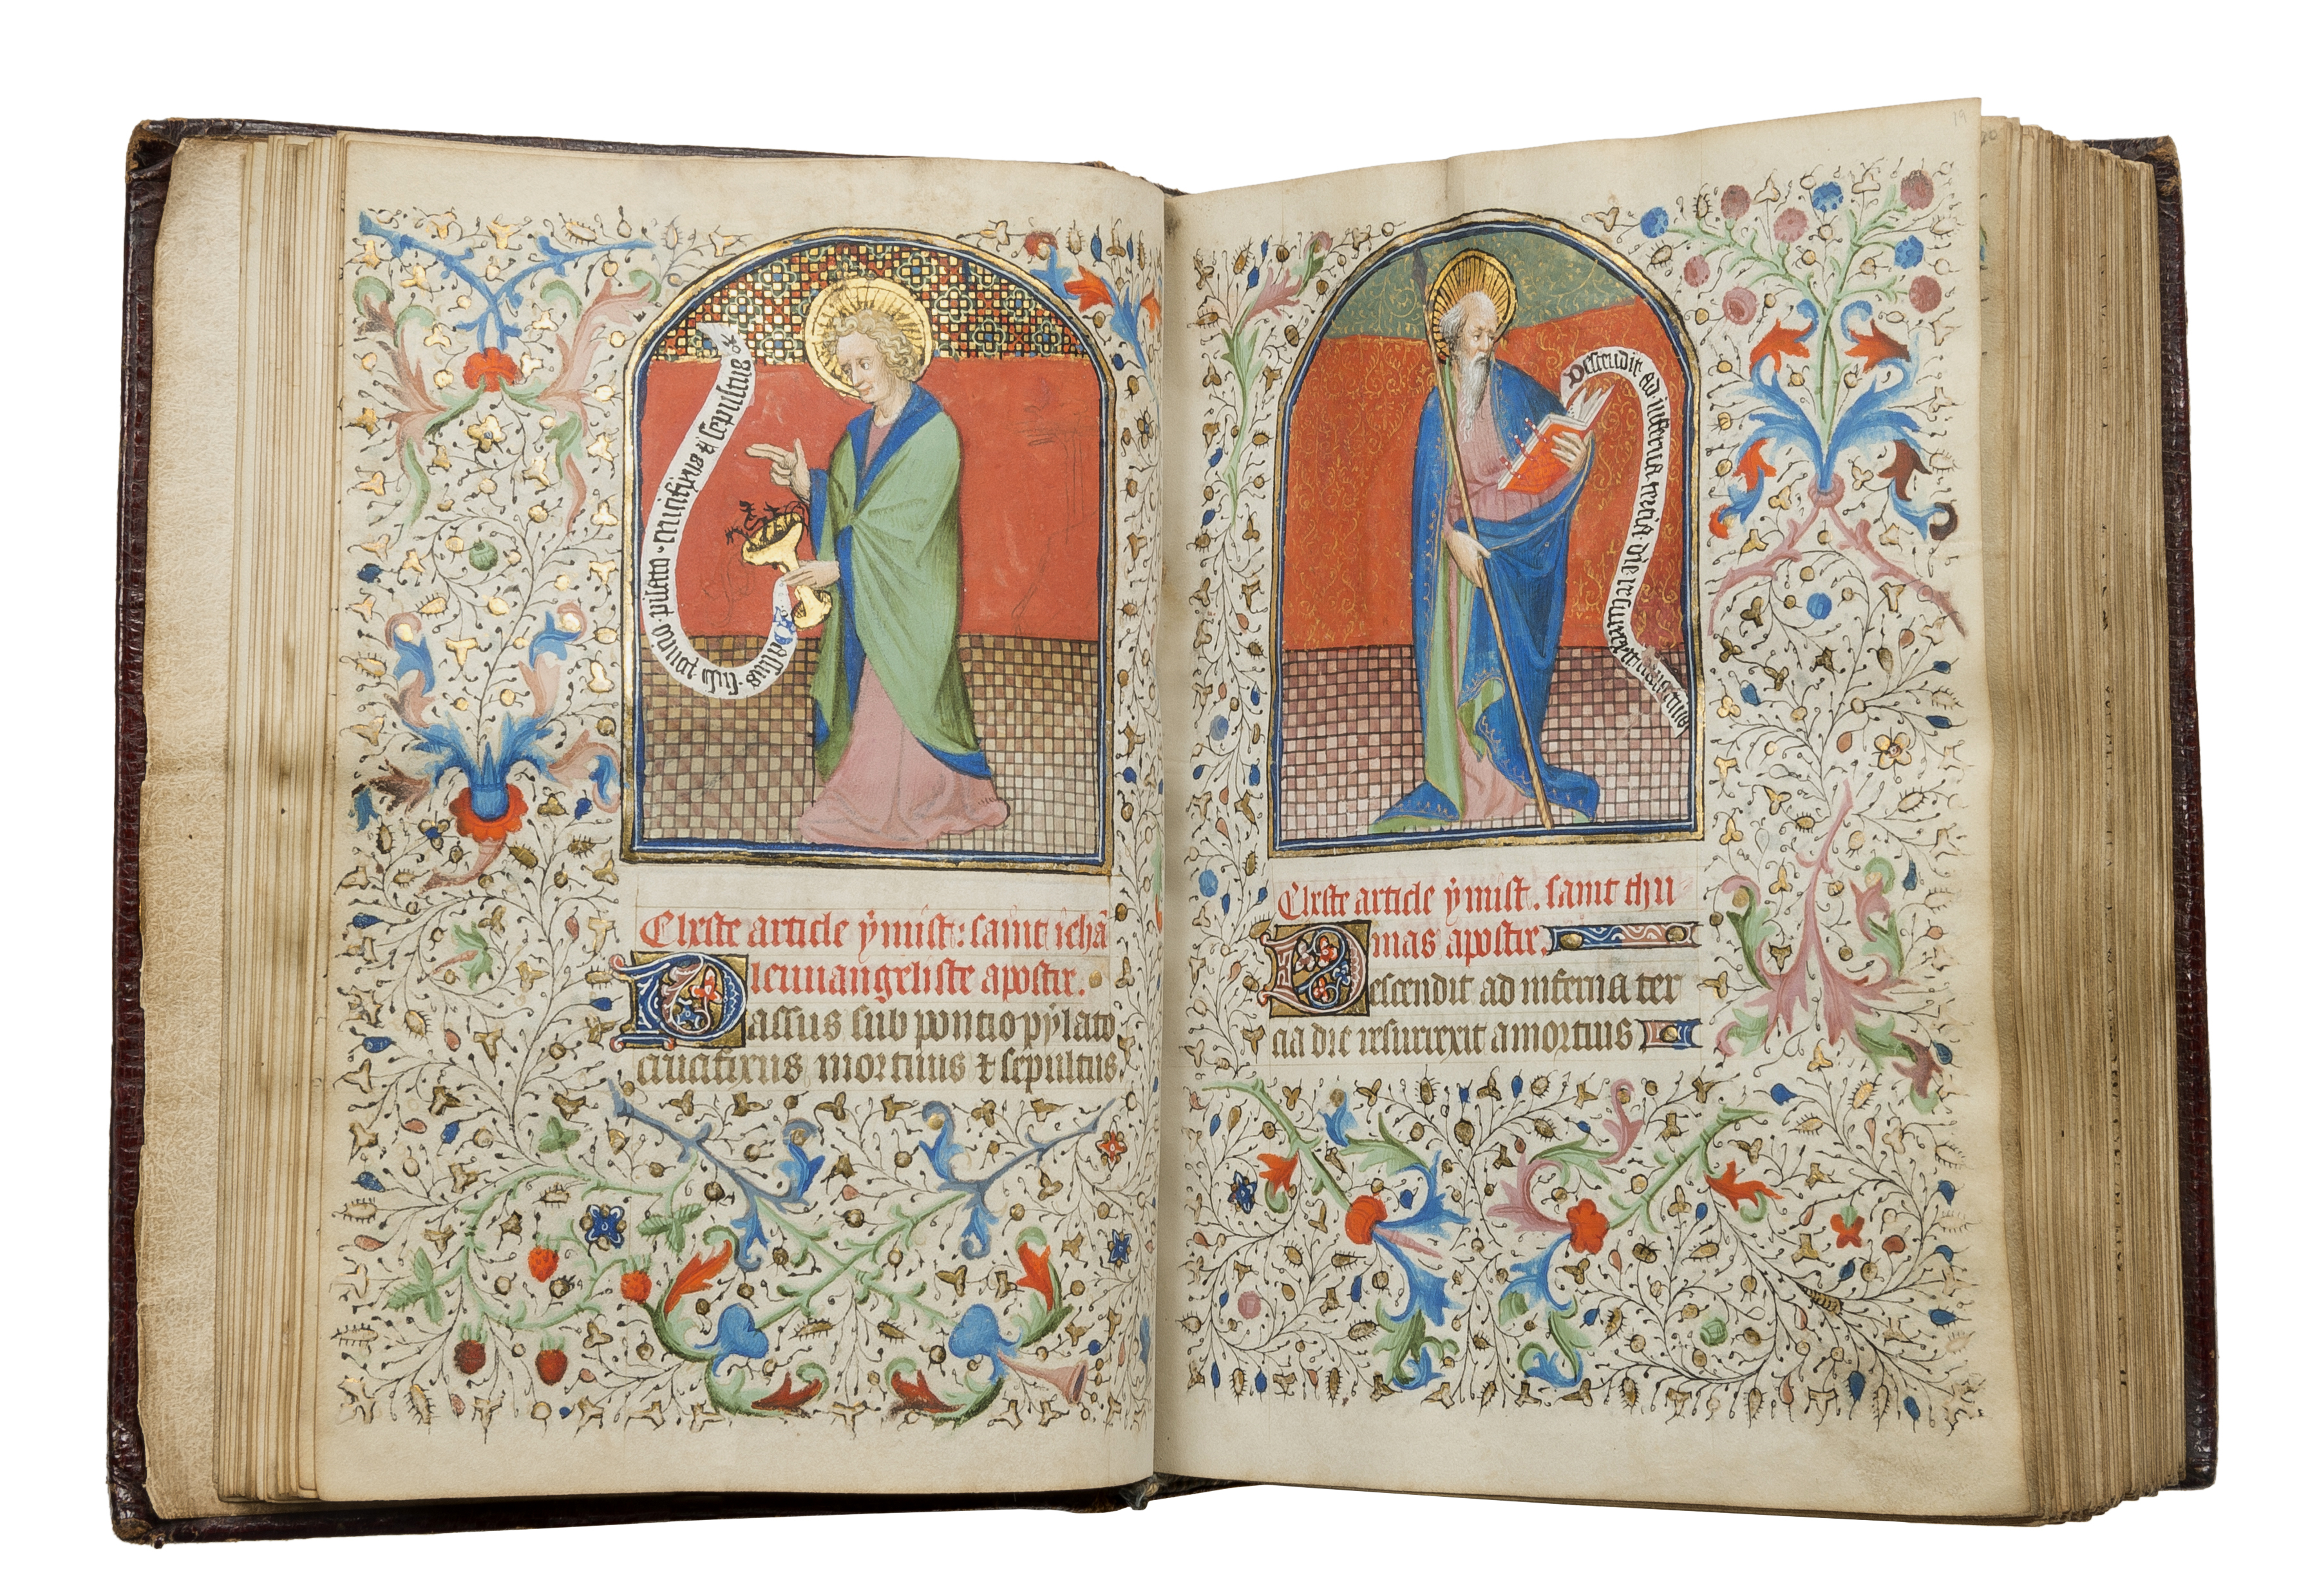 Passus · sub · poncio · pilato · crucifixus & sepultus &
Cheste article ÿ mist : saint iehã
leuuangeliste apostre.
Passus sub pontio pÿlato
crucifixus mortuus & sepultus
19
Descendit ad inferna tercia die resurrexit
Cheste article ÿ mist . saint thu
mas apostre.
Descendit ad inferna ter
cia die resurrexit a mortuis